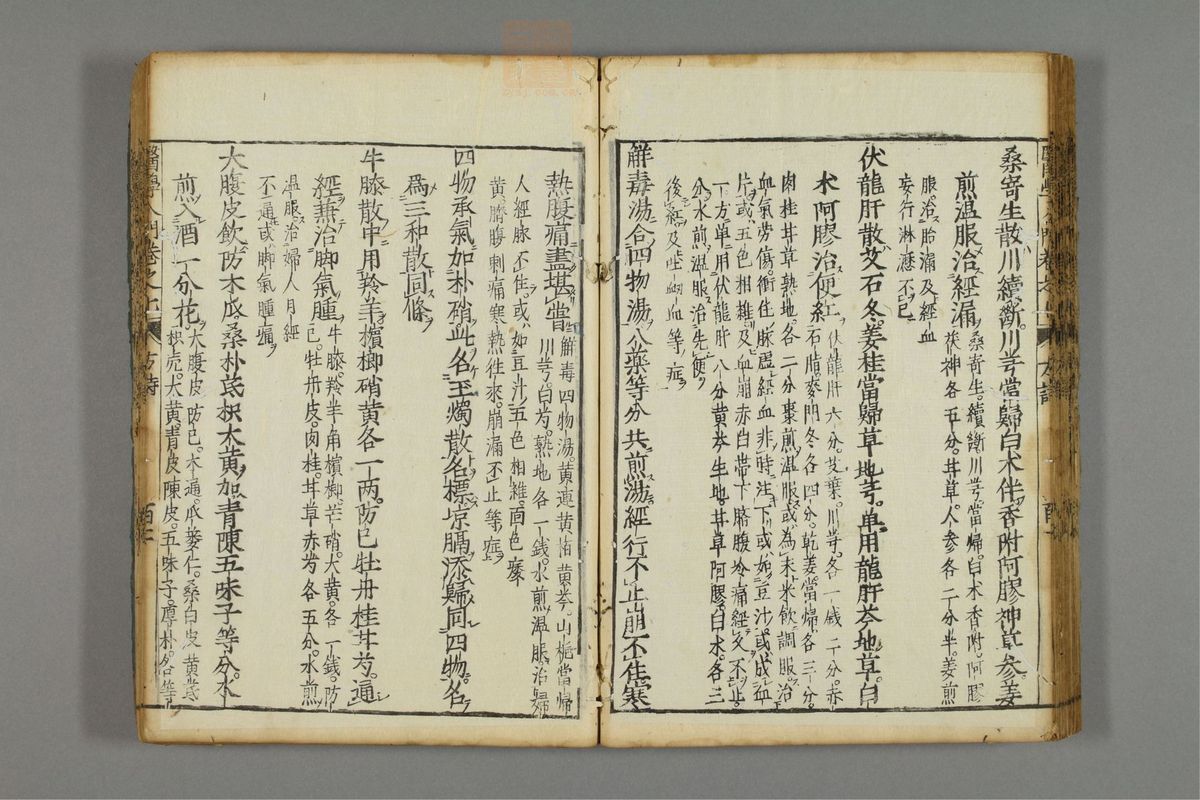 桑寄生散川續斷川芎當歸白术伴香附阿膠神草參姜
煎溫服治經漏
桑寄生。續斷川芎。當帰。白术香附。阿膠
茯神各五分。甘草。人參各二分半。姜煎
服治胎漏及經血
妄行淋瀝不已
伏龍肝散艾石冬。姜桂當歸草地芎。单用龍肝芩地草。白
术阿膠治便紅
伏龍肝六分。艾葉。川芎各一戔二分。赤
石脂。麥門冬各四分。乾姜當帰各三分。
肉桂甘草熟地。各二分棗煎溫服。或為末米飲調服治
血氣労傷。衝任脉虛經血非時注下。或如豆汁。或成血
片或五色相雜及血崩赤白帯下臍腹冷痛經久不止。
一方単用伏龍肝八分黄芩生地。甘草阿膠白术。各三
分。水煎溫服治先便
後紅及吐衂血等症
觧毒湯合四物湯八藥等分共煎湯經行不止崩不住寒
熱腹痛盡堪嘗
觧毒四物湯。黄連黄栢黄芩。山梔當帰
川芎。白芍。熟地各一錢。水煎溫服治婦
人經脉不住。或如豆汁五色相雜。面色痿
黄。臍腹刺痛寒熱徃來。崩漏不止等症
四物承氣如朴硝此名玉燭散名標凉膈添歸同四物名
爲三和散同條
牛膝散中用羚羊檳榔硝黄各一两。防已牡丹桂甘芍。通
經兼治脚氣腫
牛膝。羚羊角檳榔。芒硝。大黄。各一錢。防
已。牡丹皮。肉桂。甘草赤芍各五分。水煎
溫服治婦人月經
不通或脚氣腫痛
大腹皮飲防木瓜桑朴芪枳大黄加青陳五味子等分。水
煎入酒一分花
大腹皮防已。木通。瓜蔞仁。桑白皮黄芪
枳売。大黄。青皮陳皮。五味子。厚朴。各等
醫學入門卷之七
方詩